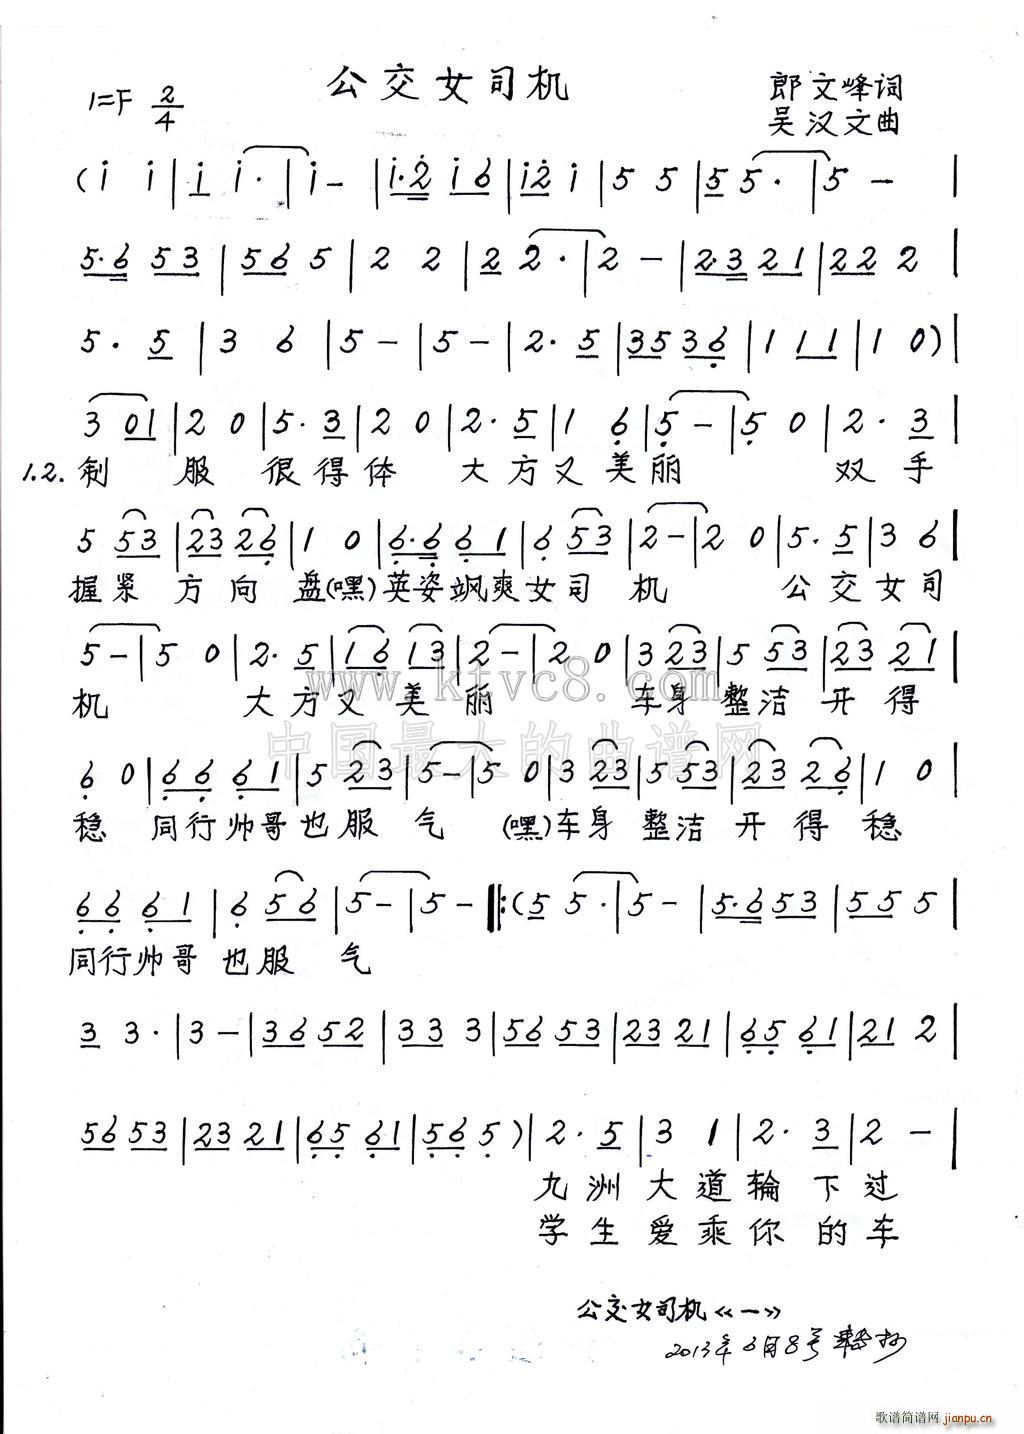 公交女司机
1=F 2/4
郎文峰词
吴汉文曲
(i i | i i· | i - | i·2 i6 | i2 i | 5 5 | 5 5· | 5 - |
5·6 53 | 56 5 | 2 2 | 2 2· | 2 - | 2·3 21 | 22 2 |
5· 5 | 3 6 | 5 - | 5 - | 2· 5 | 35 36 | 1 11 | 1 0) |
3 01 | 2 0 | 5· 3 | 2 0 | 2· 5 | 1 6 | 5 - | 5 0 | 2· 3 |
1.2. 制 服 很得体 大方又美丽 双手
5 53 | 23 26 | 1 0 | 6·6 61 | 6 53 | 2 - | 2 0 | 5· 5 | 3 6 |
握紧 方向 盘(嘿)英姿飒爽女司 机 公交女司
5 - | 5 0 | 2· 5 | 16 13 | 2 - | 2 0 | 3 23 | 5 53 | 23 21 |
机 大方又美丽 车身整洁开得
www.ktvc8.com
中国最大的曲谱网
6 0 | 66 61 | 5 23 | 5 - | 5 0 | 3 23 | 5 53 | 23 26 | 1 0 |
稳 同行帅哥也服气 (嘿)车身整洁开得稳
66 61 | 6 56 | 5 - | 5 - ‖: (5 5· | 5 - | 5·6 53 | 55 5 |
同行帅哥也服气
3 3· | 3 - | 36 52 | 33 3 | 56 53 | 23 21 | 65 61 | 21 2 |
56 53 | 23 21 | 65 61 | 56 5) | 2· 5 | 3 1 | 2· 3 | 2 - |
九洲大道轮下过
学生爱乘你的车
公交女司机《一》
2013年6月8号
歌谱简谱网 jianpu.cn